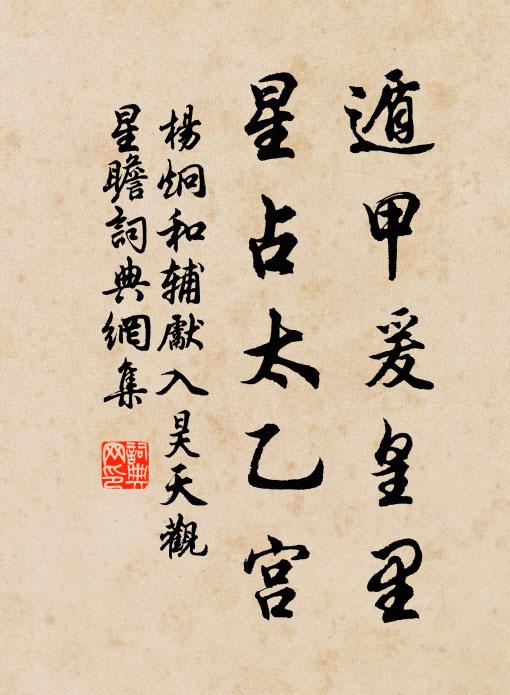 遁甲爰皇里
星占太乙宫
楊炯和辅獻入昊天觀
星瞻詞典網集
詞典
网印